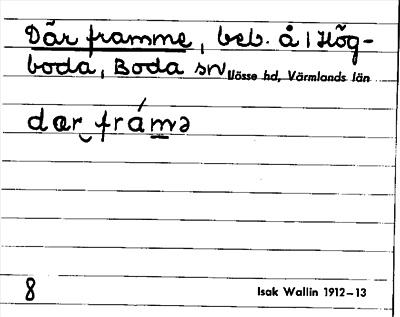 Där framme, beb. å 1 Hög-
boda, Boda sn, Jösse hd, Värmlands län
dær frámə
8
Isak Wallin 1912–13